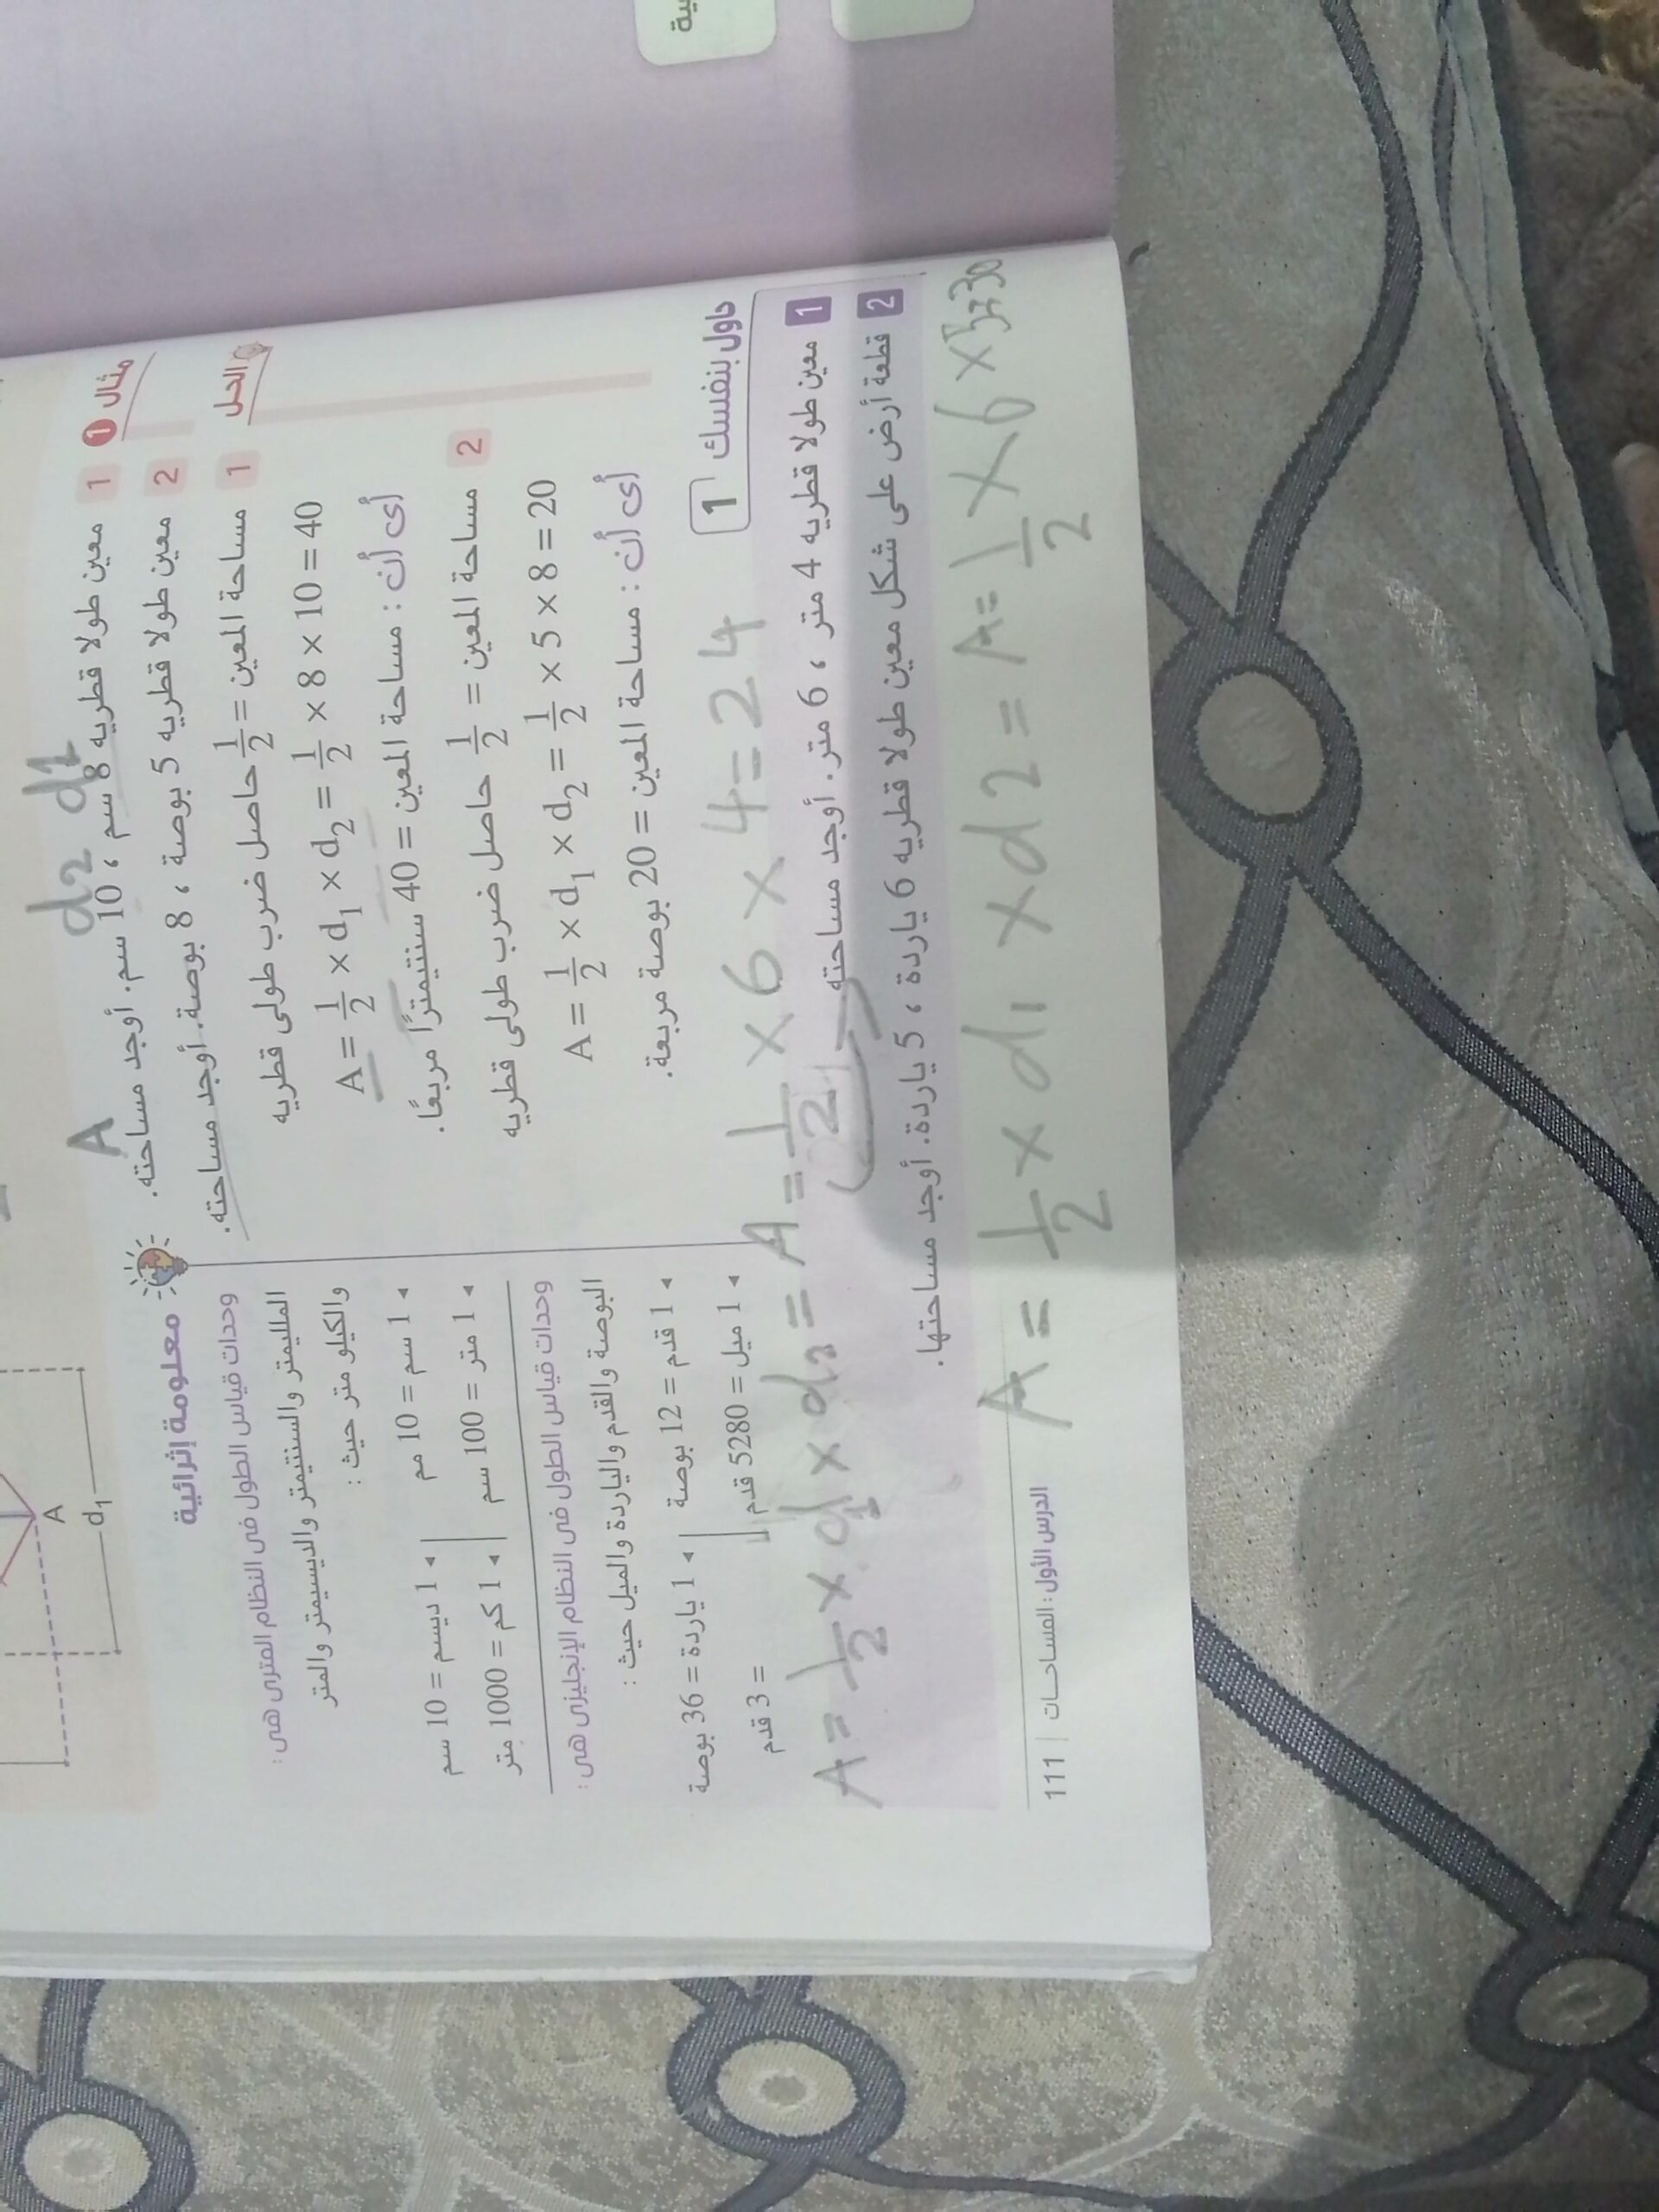 مثال 1
1 معين طولا قطريه 8 سم ، 10 سم. أوجد مساحته.
d1 d2 A
2 معين طولا قطريه 5 بوصة ، 8 بوصة. أوجد مساحته.
الحل
1 مساحة المعين = 1/2 حاصل ضرب طولى قطريه
A = 1/2 × d1 × d2 = 1/2 × 8 × 10 = 40
أى أن : مساحة المعين = 40 سنتيمترًا مربعًا.
2 مساحة المعين = 1/2 حاصل ضرب طولى قطريه
A = 1/2 × d1 × d2 = 1/2 × 5 × 8 = 20
أى أن : مساحة المعين = 20 بوصة مربعة.
A
d1
معلومة إثرائية
وحدات قياس الطول فى النظام المترى هى :
الملليمتر والسنتيمتر والديسيمتر والمتر
والكيلو متر حيث :
◂ 1 سم = 10 مم | ◂ 1 ديسم = 10 سم
◂ 1 متر = 100 سم | ◂ 1 كم = 1000 متر
وحدات قياس الطول فى النظام الإنجليزى هى :
البوصة والقدم والياردة والميل حيث :
◂ 1 قدم = 12 بوصة | ◂ 1 ياردة = 36 بوصة
◂ 1 ميل = 5280 قدم | = 3 قدم
حاول بنفسك 1
1 معين طولا قطريه 4 متر ، 6 متر. أوجد مساحته.
A = 1/2 × d1 × d2 = A = 1/2 × 6 × 4 = 24
2 قطعة أرض على شكل معين طولا قطريه 6 ياردة ، 5 ياردة. أوجد مساحتها.
A = 1/2 × d1 × d2 = A = 1/2 × 6 × 5 = 30
الدرس الأول : المساحات | 111